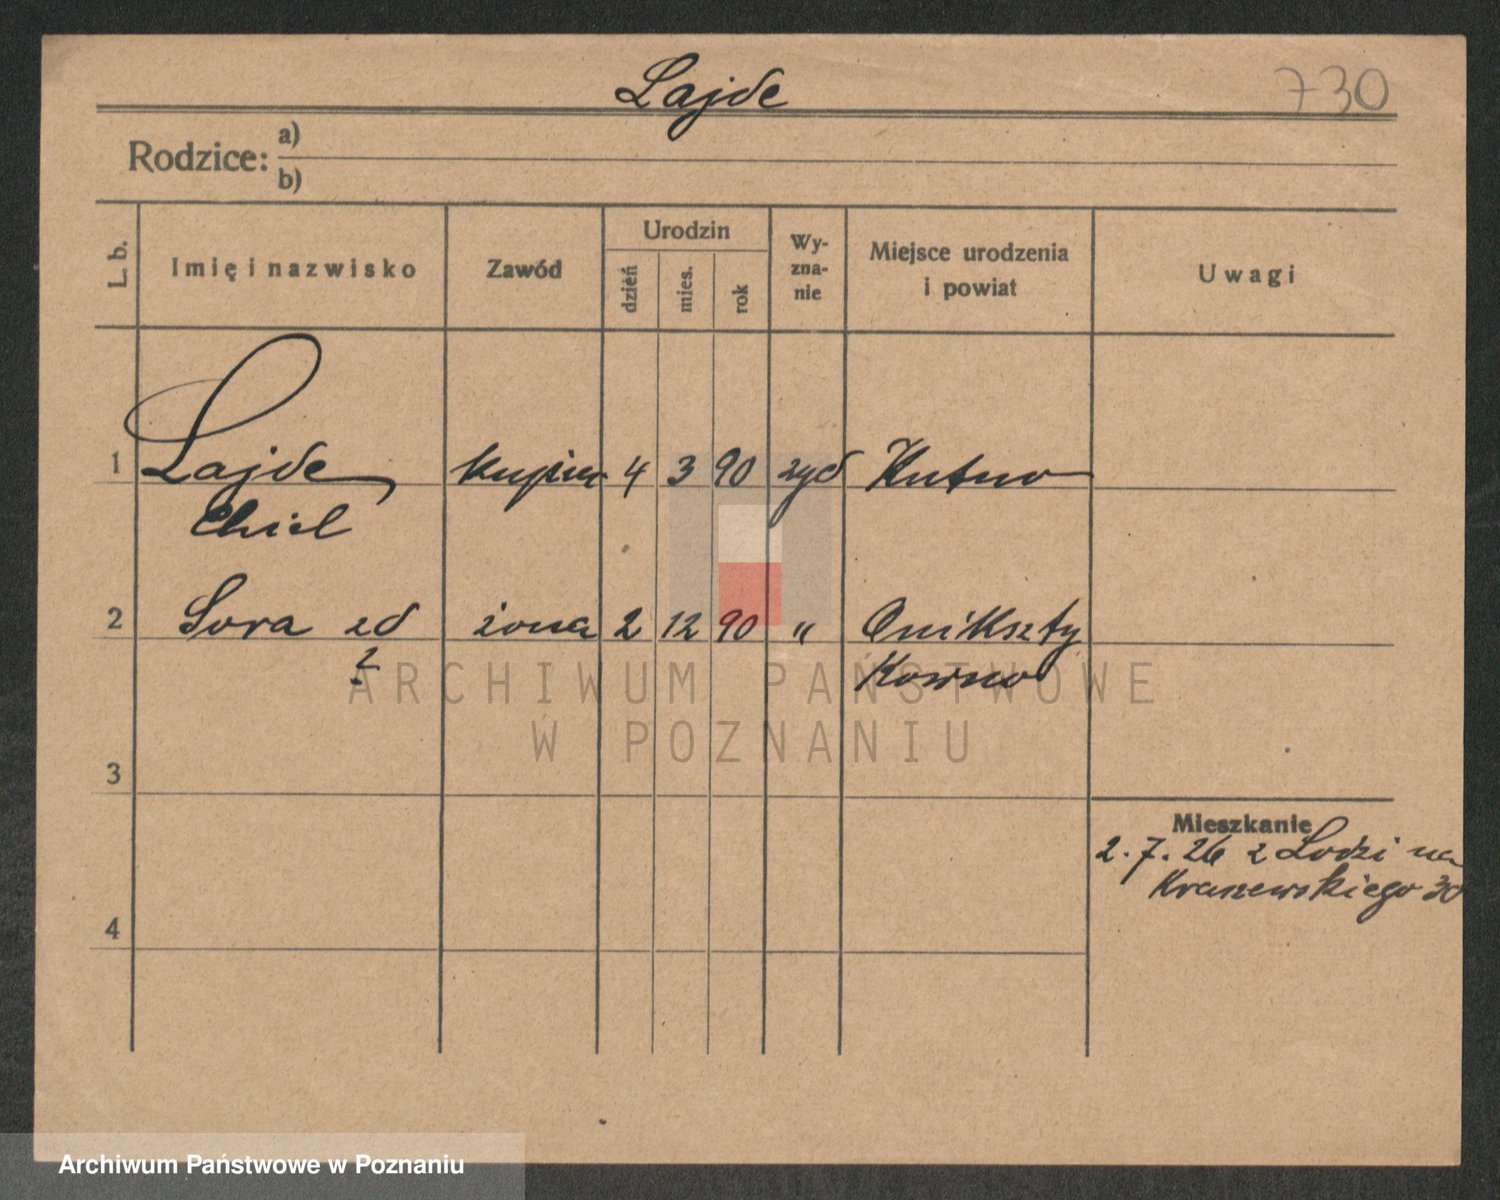 Lajde
730
Rodzice: a)
b)
L. b.
Imię i nazwisko
Zawód
Urodzin
dzień
mies.
rok
Wy-
zna-
nie
Miejsce urodzenia
i powiat
Uwagi
1 Lajde kupiec 4 3 90 żyd Kutno
Chiel
2 Sora zd żona 2 12 90 " Onikszty
? Kowno
ARCHIWUM PAŃSTWOWE
W POZNANIU
3
Mieszkanie
2. 7. 26 z Łodzi na
Kraszewskiego 30
4
Archiwum Państwowe w Poznaniu